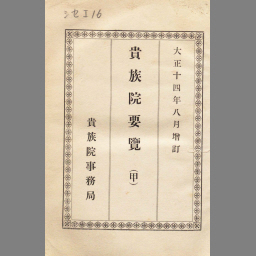 大正十四年八月增訂
貴族院要覽(甲)
貴族院事務局